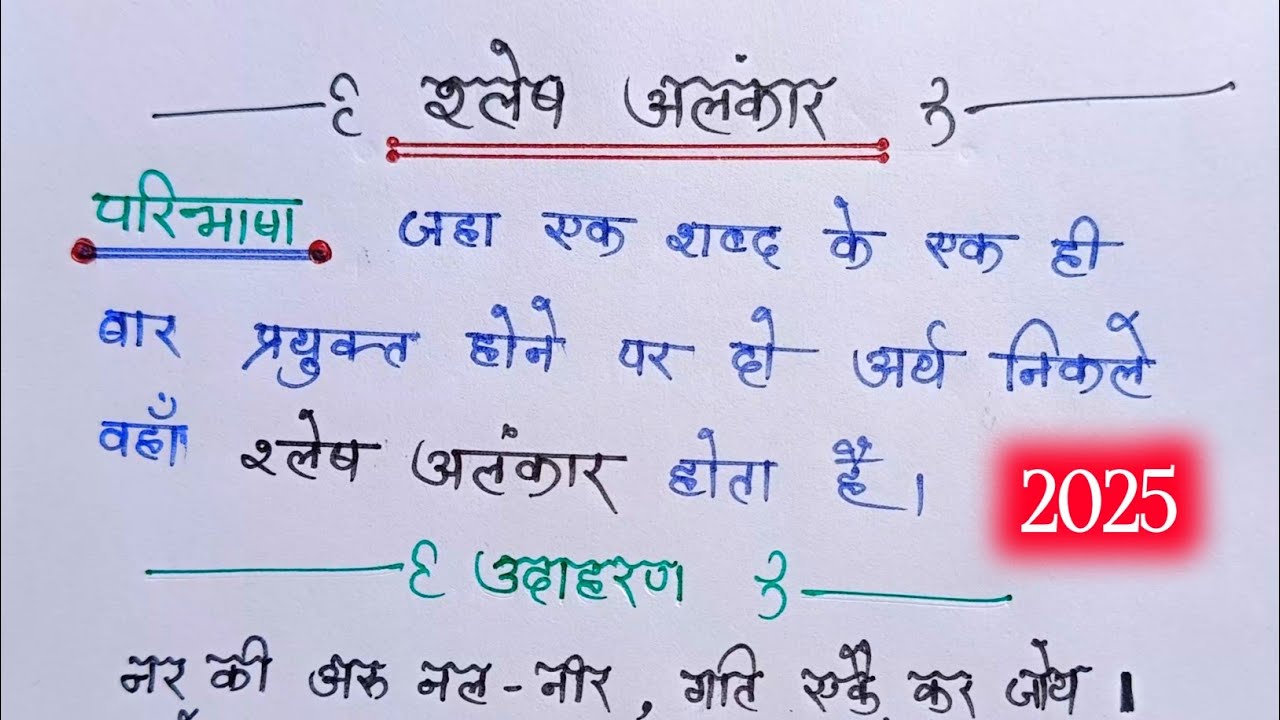 श्लेष अलंकार
परिभाषा जहा एक शब्द के एक ही
बार प्रयुक्त होने पर दो अर्थ निकले
वहाँ श्लेष अलंकार होता है।
2025
उदाहरण
नर की अरु नल-नीर, गति एकै कर जोय।